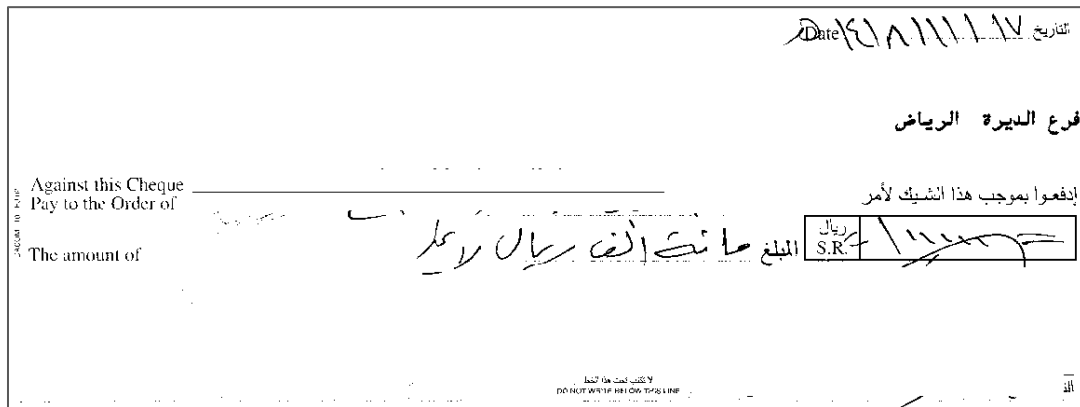 التاريخ ١٧/١١/١٤١٨ Date
فرع الديرة الرياض
Against this Cheque
Pay to the Order of
إدفعوا بموجب هذا الشيك لأمر
The amount of
المبلغ مائة ألف ريال لا غير
ريال
S.R.
لا تكتب تحت هذا الخط
DO NOT WRITE BELOW THIS LINE